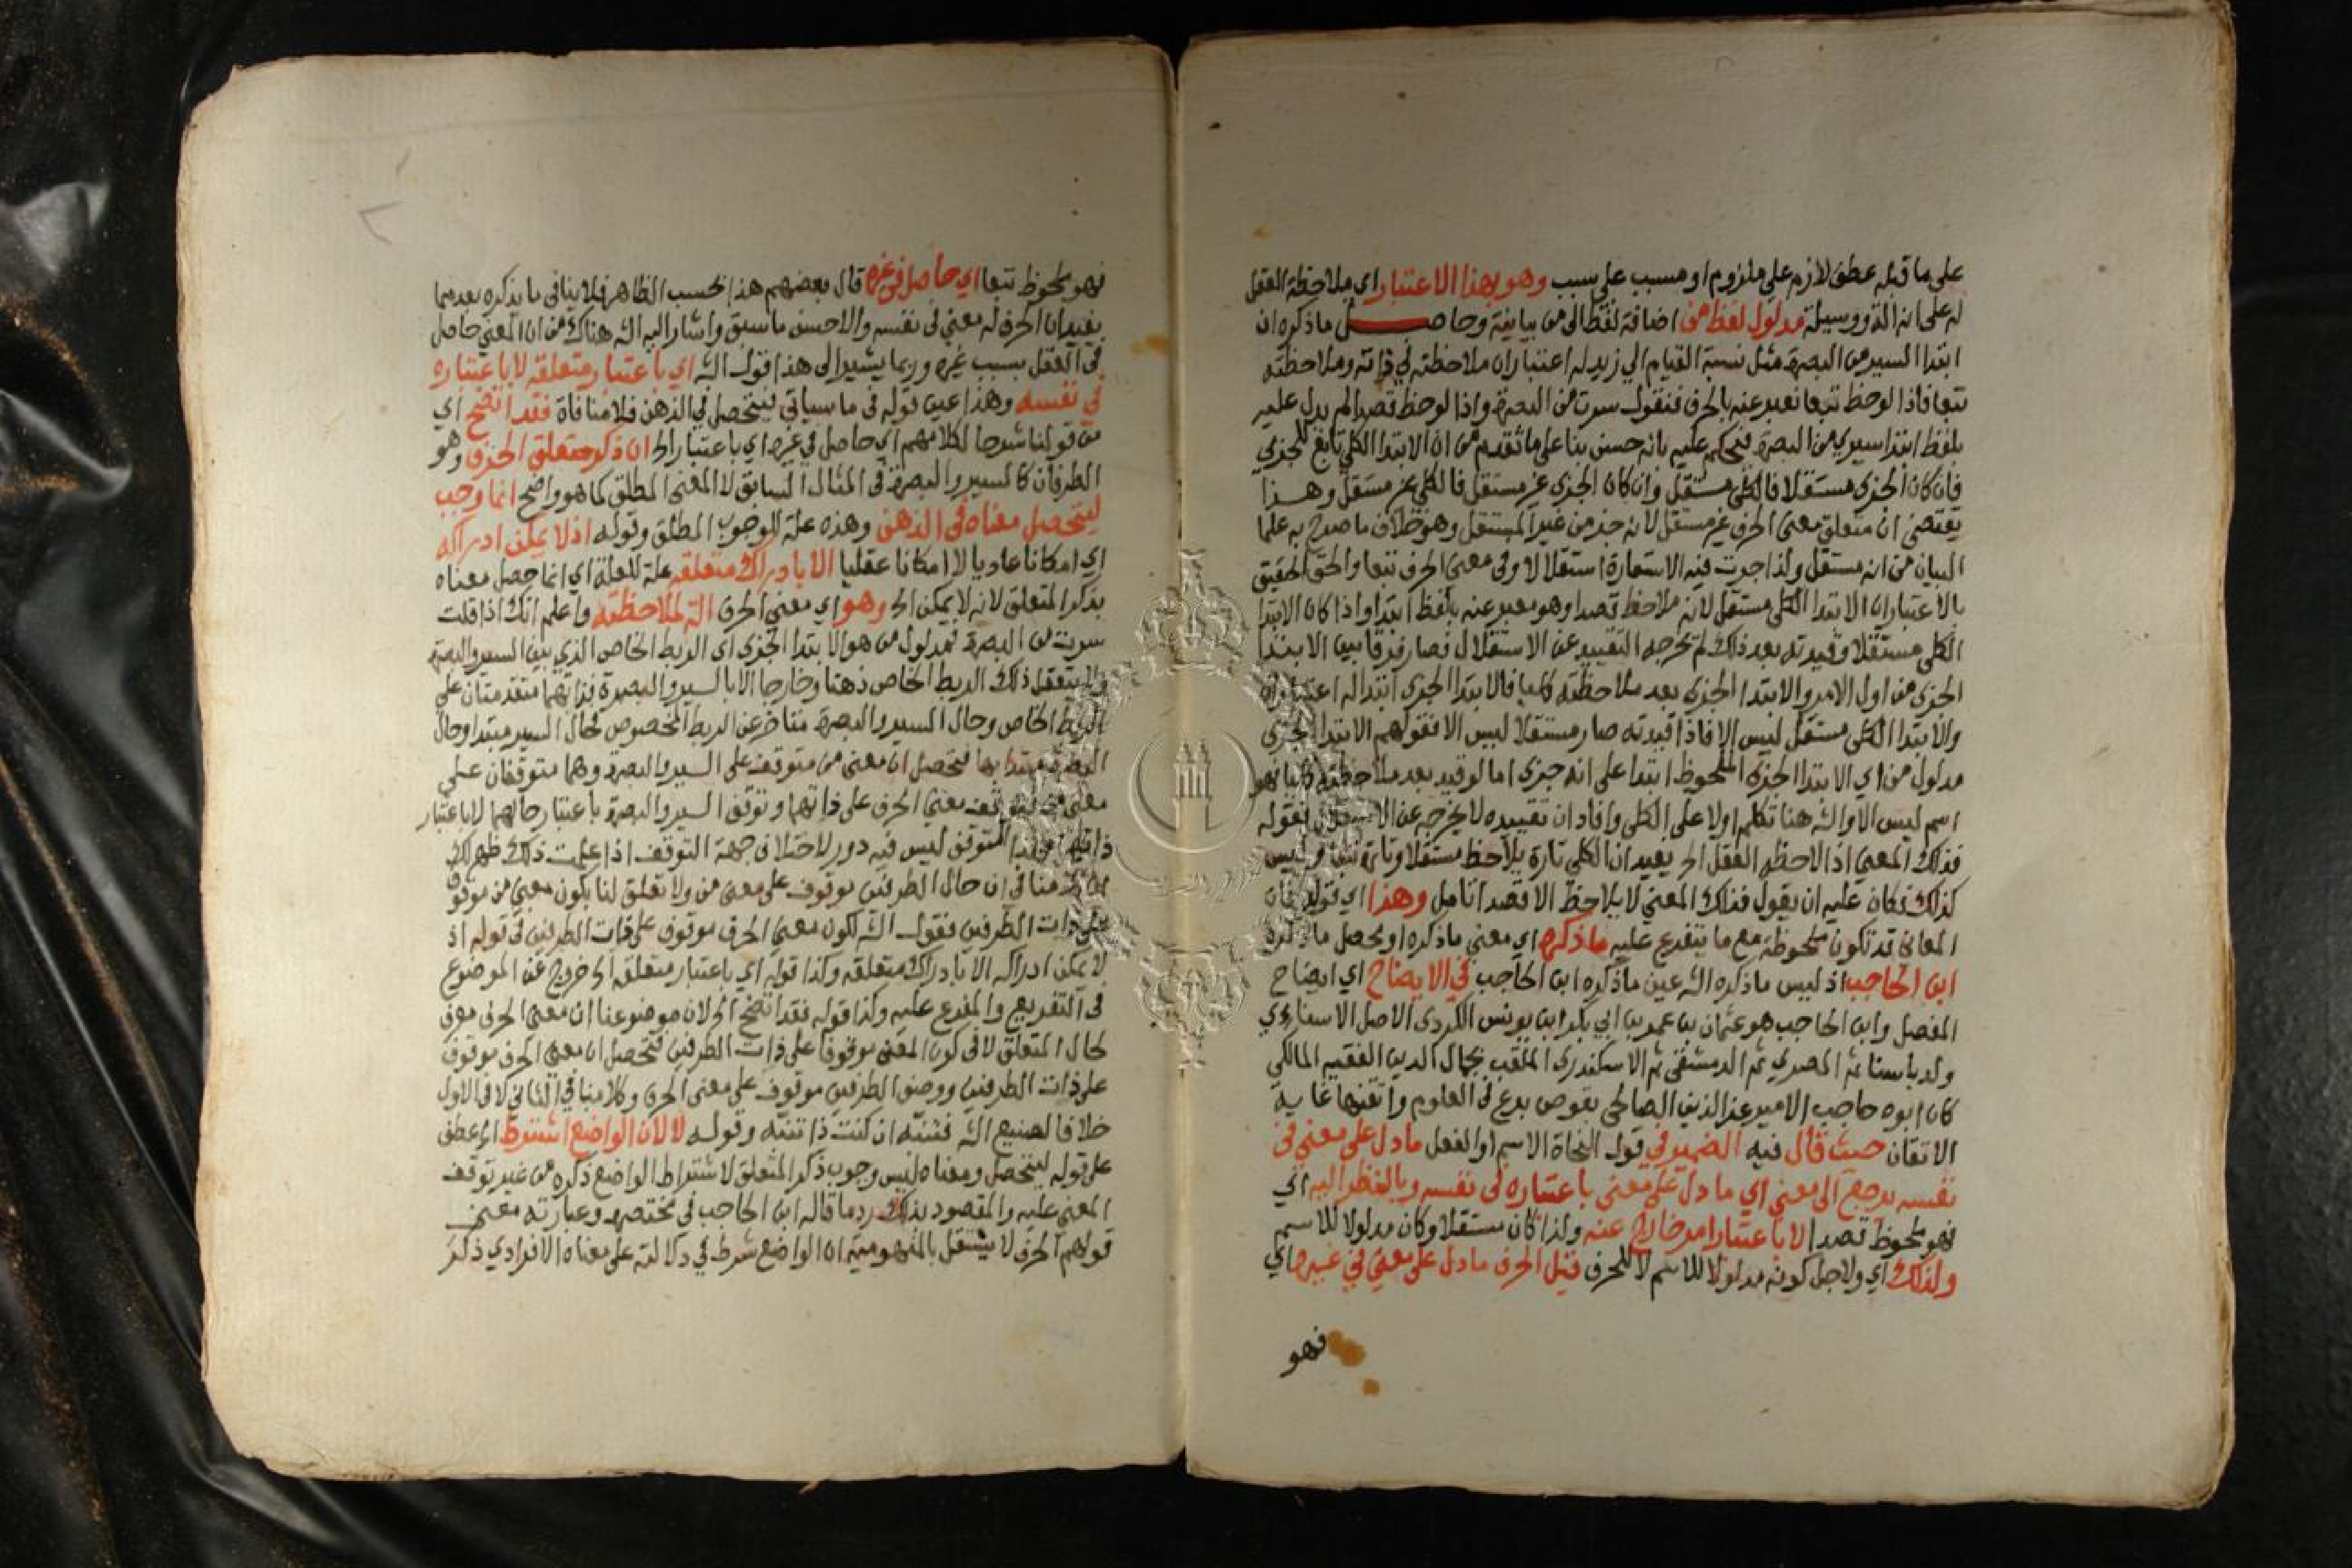 على ما قبله عطف لازم على ملزوم او مسبب على سبب وهو بهذا الاعتبار اي ملاحظة العقل
له على انه الة ووسيلة مدلول لفظ من اضافة لفظ الى من بيانية وحاصل ما ذكره ان
ابتدا السير من البصرة مثل نسبة القيام الي زيد له اعتباران ملاحظته في ذاته وملاحظته
تبعا فاذا لوحظ تبعا نعبر عنه بالحرف فنقول سرت من البصرة واذا لوحظ قصدا لم يدل عليه
بلفظ ابتدا سيري من البصرة فيحكم عليه بانه حسن بنا على ما تقدم من ان الابتدا الكلي تابع للجزي
فان كان الجزي مستقلا فالكلي مستقل وان كان الجزي غير مستقل فالكلي غير مستقل وهذا
يقتضي ان متعلق معنى الحرف غير مستقل لانه جز من غير المستقل وهو خلاف ما صرح به علما
البيان من انه مستقل ولذا جرت فيه الاستعارة استقلالا وفى معنى الحرف تبعا والحق الحقيق
بالاعتبار ان الابتدا الكلي مستقل لانه ملاحظ قصدا وهو معبر عنه بلفظ ابتدا واذا كان الابتدا
الكلي مستقلا وقيدته بعد ذلك لم تخرجه التقييد عن الاستقلال فصار فرقا بين الابتدا
الجزي من اول الامر والابتدا الجزي بعد ملاحظته كليا فالابتدا الجزي ابتدا له اعتباران
والابتدا الكلي مستقل ليس الا فاذا قيدته صار مستقلا ليس الا فقولهم الابتدا الجزي
مدلول من اي الابتدا الجزي الملحوظ ابتدا على انه جزي اما لو قيد بعد ملاحظته كليا فهو
اسم ليس الا والشه هنا تكلم اولا على الكلي وافاد ان تقييده لا يخرجه عن الاستقلال فقوله
فذلك المعنى اذا لاحظه العقل الخ يفيد ان الكلي تارة يلاحظ مستقلا وتارة تبعا وليس
كذلك فكان عليه ان يقول فذلك المعني لا يلاحظ الا قصدا تامل وهذا اي قوله فان
المعانى قد تكون ملحوظة مع ما يتفرع عليه ما ذكره اي معني ما ذكره او يحصل ما ذكره
ابن الحاجب اذ ليس ما ذكره الشه عين ما ذكره ابن الحاجب في الايضاح اي ايضاح
المفصل وابن الحاجب هو عثمان بن عمر بن ابي بكر ابن يونس الكردى الاصل الاسنارءي
ولد باسنا ثم المصري ثم الدمشقى ثم الاسكندرى الملقب بجمال الدين الفقيه المالكي
كان ابوه حاجب الامير عز الدين الصالحى بقوص برع فى العلوم واتقنها غاية
الاتقان حيث قال فيه الضمير في قول النحاة الاسم او الفعل ما دل على معني في
نفسه يرجع الى معني اي ما دل على معني باعتباره في نفسه وبالنظر اليه اي
فهو ملحوظ قصدا لا باعتبار امر خارج عنه ولذا كان مستقلا وكان مدلولا للاسم
ولذلك اي ولاجل كونه مدلولا للاسم لا للحرف قيل الحرف ما دل على معني في غيره اي
فهو
فهو ملحوظ تبعا اي حاصل في غيره قال بعضهم هذا بحسب الظاهر فلا ينافى ما يذكره بعد مما
يفيد ان الحرف له معني في نفسه والاحسن ما سبق واشار اليه الشه هناك من ان المعني حاصل
فى العقل بسبب غيره وربما يشير الى هذا قول الشه اي باعتبار متعلقه لا باعتباره
في نفسه وهذا عين قوله فى ما سياتي ليتحصل في الذهن فلا منافاة فقد اتضح اي
من قولنا شرحا لكلامهم اي حاصل في غيره اي باعتبار الخ ان ذكر متعلق الحرف وهو
الطرفان كالسير والبصرة فى المثال السابق لا المعنى المطلق كما هو واضح انما وجب
ليتحصل معناه فى الذهن وهذه علة للوجوب المطلق وقوله اذ لا يمكن ادراكه
اي امكانا عاديا لا امكانا عقليا الا بادراك متعلقه علة للعلة اي انما حصل معناه
بذكر المتعلق لانه لا يمكن الخ وهو اي معني الحرف الة لملاحظته واعلم انك اذا قلت
سرت من البصرة فمدلول من هو الابتدا الجزي اى الربط الخاص الذي بين السير والبصرة
ولا يتعقل ذلك الربط الخاص ذهنا وخارجا الا بالسير والبصرة فذاتهما متقدمتان على
الربط الخاص وحال السير والبصرة متاخر عن الربط المخصوص فحال السير مبتدا وحال
البصرة مبتدا بها فتحصل ان معنى من متوقف على السير والبصرة وهما متوقفان على
معنى من فتوقف معنى الحرف على ذاتهما وتوقف السير والبصرة باعتبار حالهما لا باعتبار
ذاتهما وهذا التوقف ليس فيه دور لاختلاف جهة التوقف اذا علمت ذلك ظهر لك
ان كلامنا فى ان حال الطرفين موقوف على معنى من ولا تعلق لنا بكون معني من موقوفا
على ذات الطرفين فقول الشه لكون معنى الحرف موقوف على ذات الطرفين في قوله اذ
لا يمكن ادراكه الا بادراك متعلقه وكذا قوله اي باعتبار متعلقه الخ خروج عن الموضوع
فى التفريع والمفرع عليه وكذا قوله فقد اتضح الخ لان موضوعنا ان معنى الحرف موقف
لحال المتعلق لا فى كون المعنى موقوفا على ذات الطرفين فتحصل ان معنى الحرف موقوف
على ذات الطرفين ووصف الطرفين موقوف على معنى الحرف وكلامنا في الثانى لا فى الاول
خلافا لصنيع الشه فتنبه ان كنت ذا تنبه وقوله لا لان الواضع اشترط الخ عطف
على قوله ليتحصل ومعناه ليس وجوب ذكر المتعلق لاشتراط الواضع ذكره من غير توقف
المعنى عليه والمقصود بذلك رد ما قاله ابن الحاجب فى مختصره وعبارته معنى
قولهم الحرف لا يستقل بالمفهومية ان الواضع شرط في دلالته على معناه الافرادي ذكر